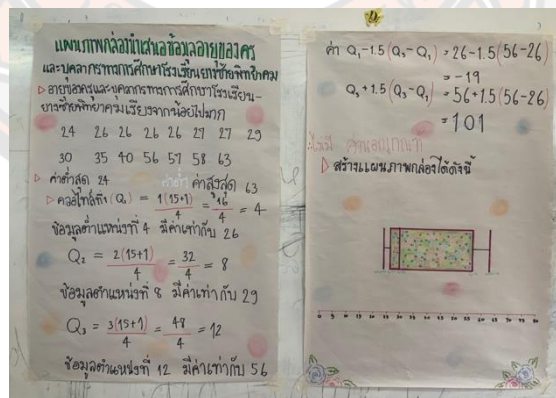 แผนภาพกล่องนำเสนอข้อมูลอายุของครู
และบุคลากรทางการศึกษาโรงเรียนยางซ้ายพิทยาคม
▷ อายุของครูและบุคลากรทางการศึกษาโรงเรียน-
ยางซ้ายพิทยาคมเรียงจากน้อยไปมาก
24 26 26 26 27 27 29
30 35 40 56 57 58 63
▷ ค่าต่ำสุด 24 ค่าสูงสุด 63
▷ ควอไทล์ที่1 (Q₁) = 1(15+1)/4 = 16/4 = 4
ข้อมูลตำแหน่งที่ 4 มีค่าเท่ากับ 26
Q₂ = 2(15+1)/4 = 32/4 = 8
ข้อมูลตำแหน่งที่ 8 มีค่าเท่ากับ 29
Q₃ = 3(15+1)/4 = 48/4 = 12
ข้อมูลตำแหน่งที่ 12 มีค่าเท่ากับ 56
ค่า Q₁-1.5(Q₃-Q₁) = 26-1.5(56-26)
= -19
Q₃+1.5(Q₃-Q₁) = 56+1.5(56-26)
= 101
∴ไม่มี ค่านอกเกณฑ์
▷ สร้างแผนภาพกล่องได้ดังนี้
0 5 10 15 20 25 30 35 40 45 50 55 60 65 70 75 80